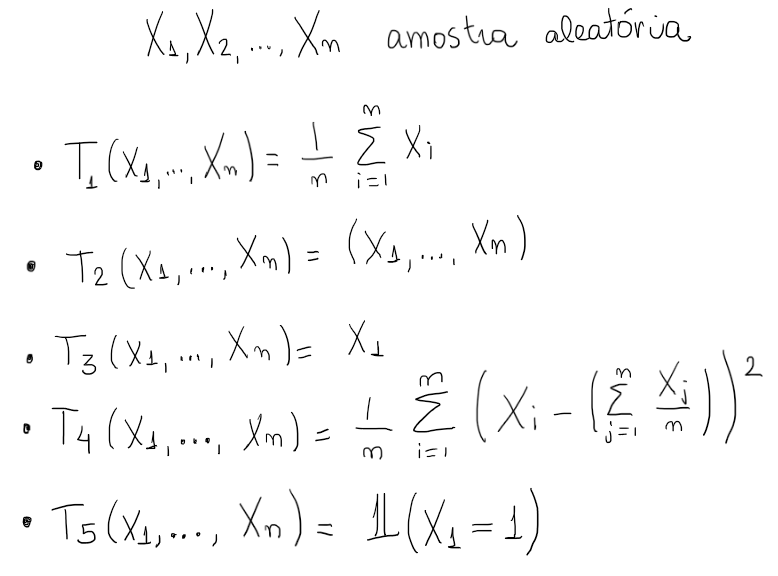 X₁, X₂, ..., Xₙ amostra aleatória
• T₁(X₁, ..., Xₙ) = 1/n ∑ᵢ₌₁ⁿ Xᵢ
• T₂(X₁, ..., Xₙ) = (X₁, ..., Xₙ)
• T₃(X₁, ..., Xₙ) = X₁
• T₄(X₁, ..., Xₙ) = 1/n ∑ᵢ₌₁ⁿ (Xᵢ - (∑ⱼ₌₁ⁿ Xⱼ/n))²
• T₅(X₁, ..., Xₙ) = 𝟙(X₁ = 1)